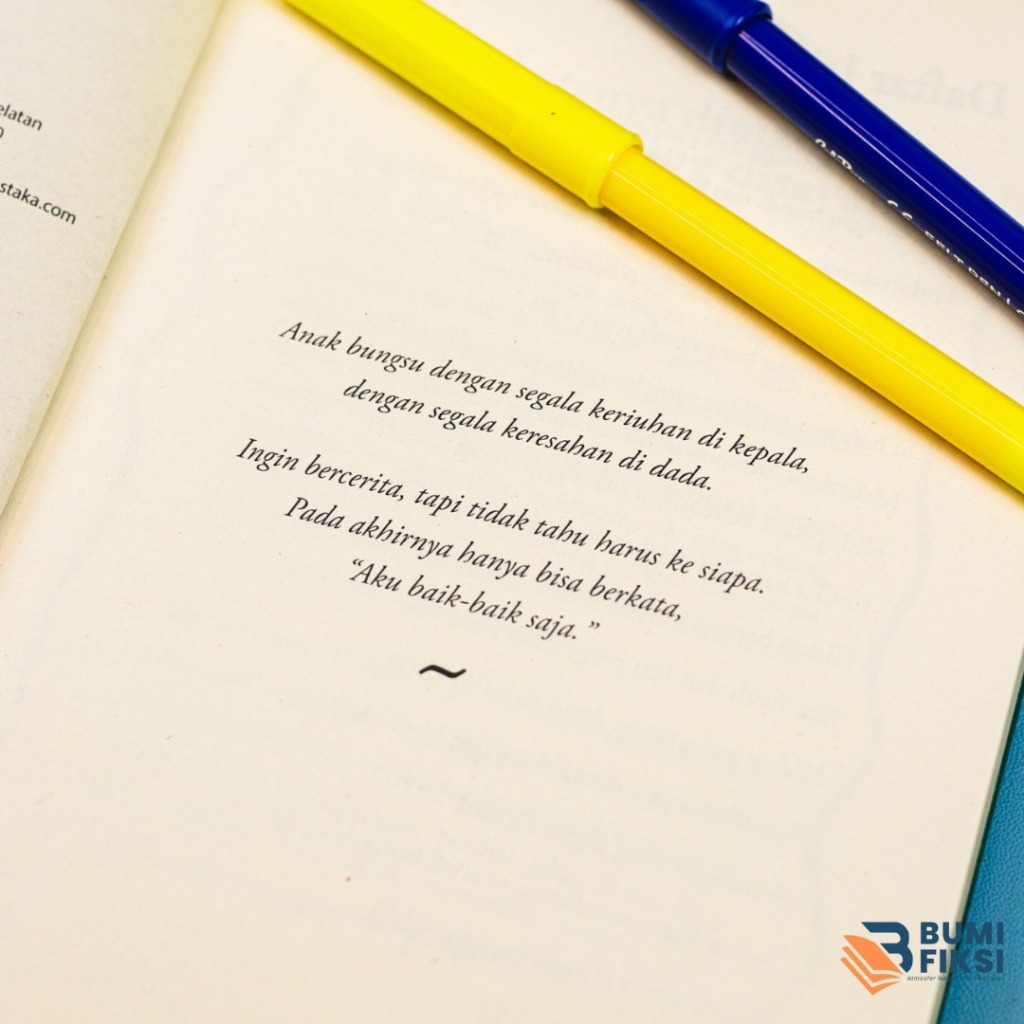 elatan
staka.com
Anak bungsu dengan segala keriuhan di kepala,
dengan segala keresahan di dada.
Ingin bercerita, tapi tidak tahu harus ke siapa.
Pada akhirnya hanya bisa berkata,
“Aku baik-baik saja.”
~
BUMI
FIKSI